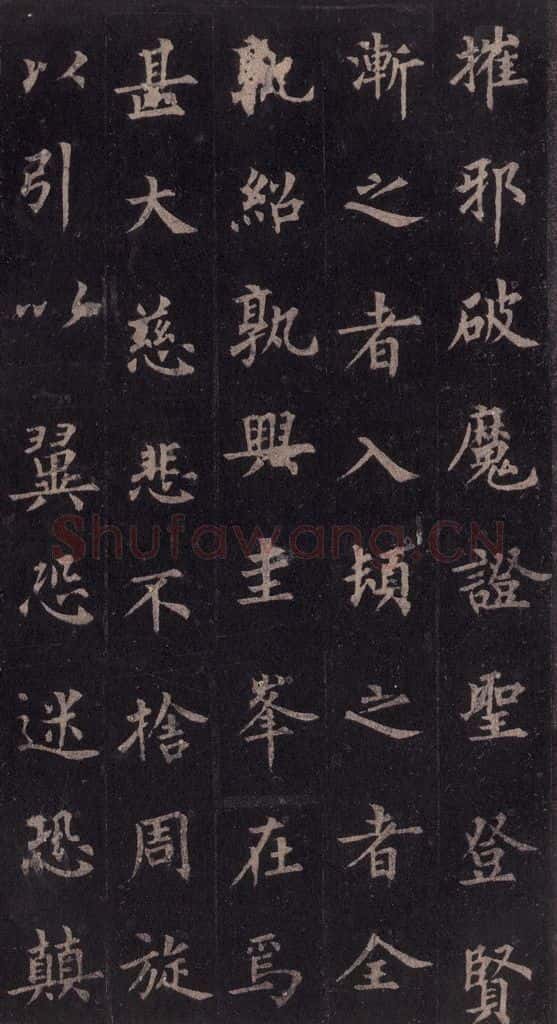 摧邪破魔證聖登賢
漸之者入頓之者全
孰紹孰興圭峯在焉
甚大慈悲不捨周旋
以引以翼恐迷恐顛
Shufawang.CN